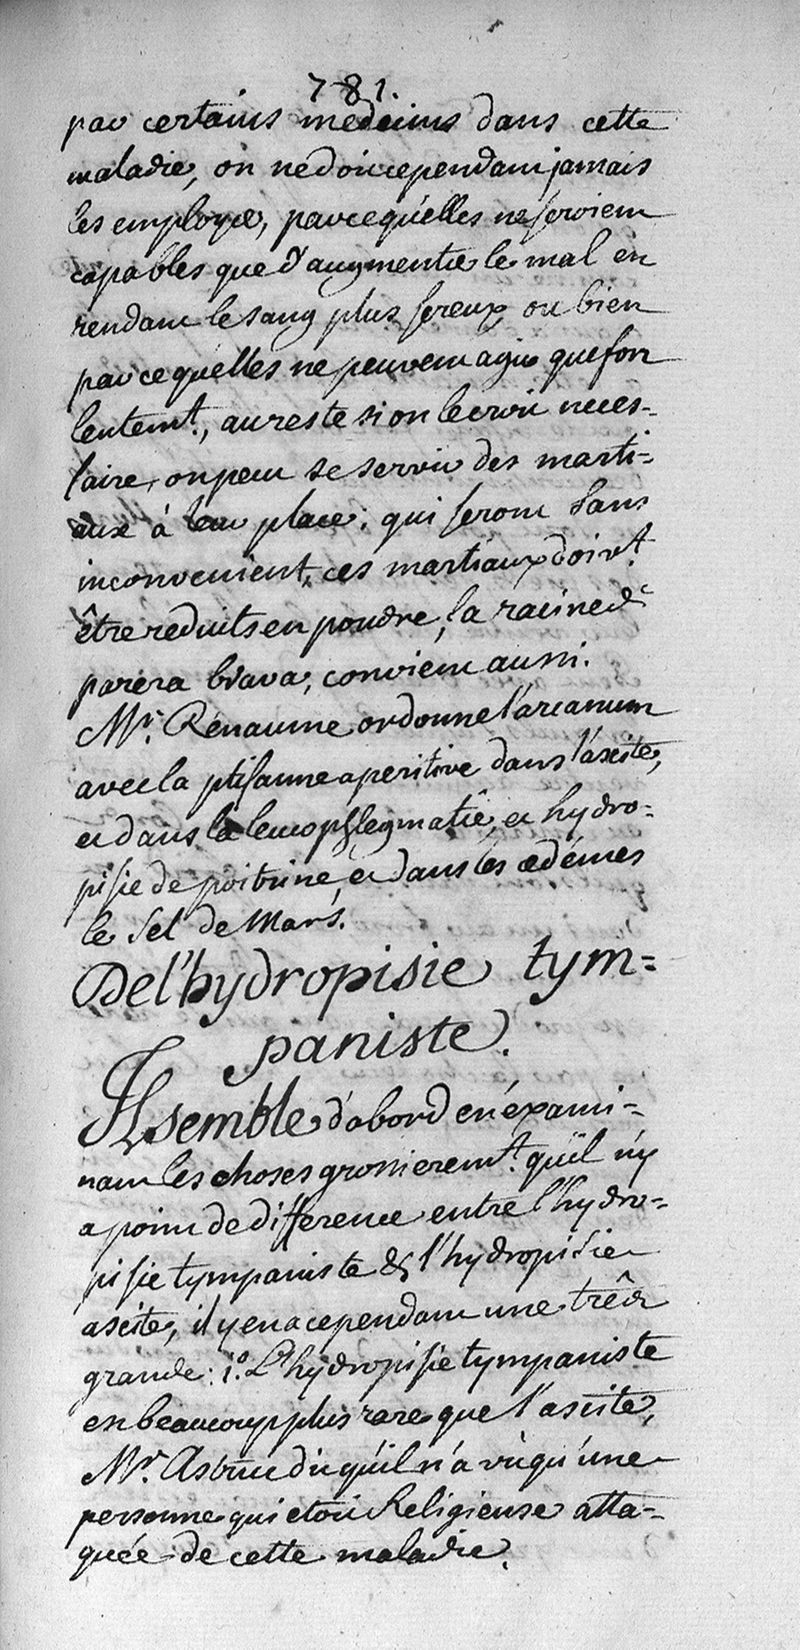 781.
par certains medecins dans cette
maladie, on ne doit cependant jamais
les employer, parce qu'elles ne seroient
capables que d'augmenter le mal en
rendant le sang plus sereux, ou bien
parce qu'elles ne peuvent agir que fort
lentemt., au reste si on le croit neces=
saire, on peut se servir des marti=
aux à leur place, qui seront sans
inconvenient, ces martiaux doivt.
être reduits en poudre, la racine de
parera brava, convient aussi.
Mr. Renaume ordonne l'arcanum
avec la ptisanne aperitive dans l'ascite,
et dans la leucophlegmatie, et hydro=
pisie de poitrine, et dans les œdémes
le sel de Mars.
De l'hydropisie tym=
paniste.
Il semble d'abord en éxami=
nant les choses grossieremt. qu'il n'y
a point de difference entre l'hydro=
pisie tympaniste & l'hydropisie
ascite, il y en a cependant une très
grande: 1.° L'hydropisie tympaniste
est beaucoup plus rare que l'ascite,
Mr. Astruc dit qu'il n'a vû qu'une
personne qui etoit Religieuse atta=
quée de cette maladie.